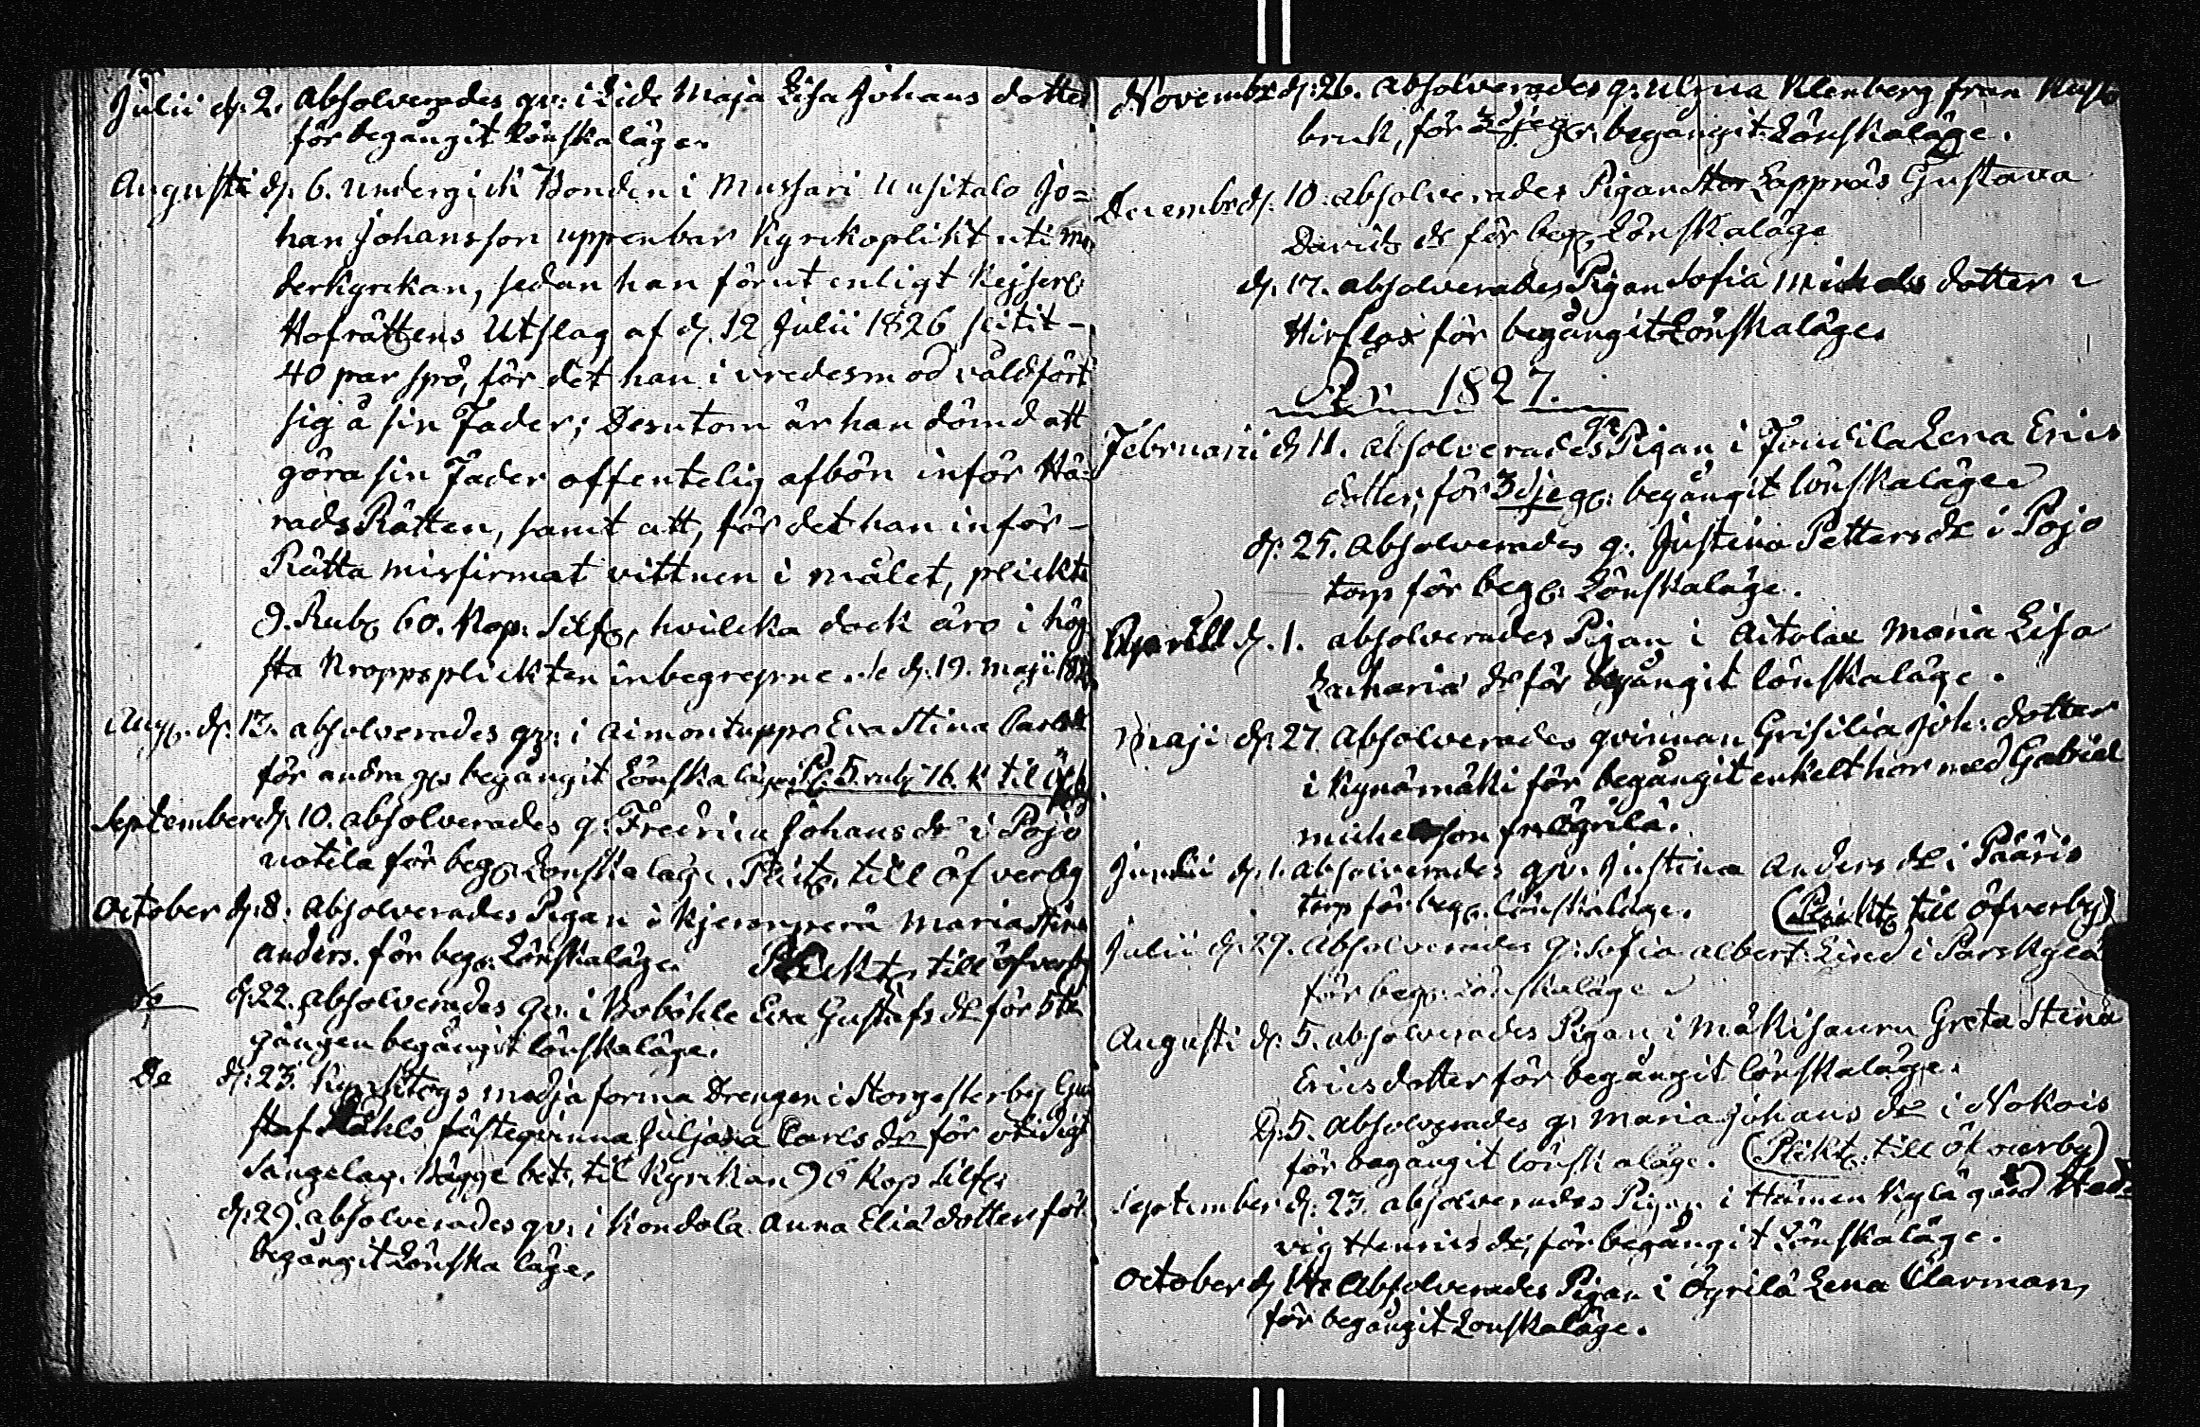 Julii d. 2. absolverades qv: i Dide Maja Lisa Johans dotter
för begångit Lönskaläge.
Augusti d. 6. undergick Bonden i Mussari Uusitalo Jo=
han Johansson uppenbar Kyrkoplikt uti Mo
derkyrkan, sedan han förut enligt Kejserl:
Hofrättens Utslag af d. 12 Julii 1826 slitit -
40 par spö, för det han i vredesmod våldfört
sig å sin Fader; Desutom är han dömd att
göra sin Fader offentelig afbön inför Hä=
rads Rätten, samt att, för det han inför -
Rätta misfirmat vittnen i målet, plickta
9. Rub. 60. Kop. Silf., hvilcka dock äro i hög
sta Kroppsplickten inbegrepne. d. 19. Maji
Aug. d. 13. absolverades qv: i Aimontuppa Eva Stina Carls dr
för andra g. begångit Lönskaläge. 5. rub. 16. K til
September d. 10. absolverades q: Fredrica Johans dr i Pojo
uotila för beg. Lönskaläge. Plict. till öfverby
October d. 8. absolverades Pigan i Kjeronperä Maria Stina
Anders. för beg. Lönskaläge. Plickt. till öfverby
d. 22. absolverades qv. i Boböhle Eva Gustafs dr för 5te
gången begångit lönskaläge.
De d. 23. Kyrktogs medja forma Drengen i Storgesterby Gu
staf Ståhls fästeqvinna Juljana Carls dr för otidigt
Sängelag. Bägge bet. til Kyrkan 96 Kop Silf.
d. 29. absolverades qv. i Kondola Anna Eliä dotter för
begångit Lönska läge.
Novembr d. 26. absolverades q: Ulrica Klenberg från
bruk, för 3dje g. begångit Lönskaläge.
Decembr d. 10. absolverades Pigan Stor Lappnäs Gustava
Davids dr för beg. Lönskaläge
d. 17. absolverades Pigan Sofia Michels dotter i
Hirslax för begångit Lönskaläge.
År 1827.
Februarii d. 11. absolverades Pigan i Jondila Lena Erics
dotter, för 3dje g. begångit lönskaläge
d. 25. absolverades q. Justina Petters dr i Pojo
torp för beg. Lönskaläge.
Aprill d. 1. absolverades Pigan i Aitolax Maria Lisa
Zacharia dr för begångit lönskaläge.
Maji d. 27. absolverades qvinnan Grisilia Joh: dotter
i Kynämäki för begångit enkelt hor med Gabriel
Michelsson fr. Ögrilä.
Julii d. 1. absolverades qv. Justina Anders dr i Pääris
torp för beg. lönskaläge. (Plickt. till öfverby)
Julii d. 29. absolverades q: Sofia Albert: Lind i Parskylä
för beg. lönskaläge
Augusti d. 5. absolverades Pigan i Mäkisauru Greta Stina
Ericsdotter för begångit lönskaläge.
D. 5. absolverades q. Maria Johans dr i Nokois
för begångit lönskaläge. (Plikt. till öfverby)
September d. 23. absolverades Pigan i Hämen Kylä gård Hed=
vig Henrics dr, för begångit Lönskaläge.
October d. 14. absolverades Pigan i Ögrilä Lena Clarman,
för begångit Lönskaläge.